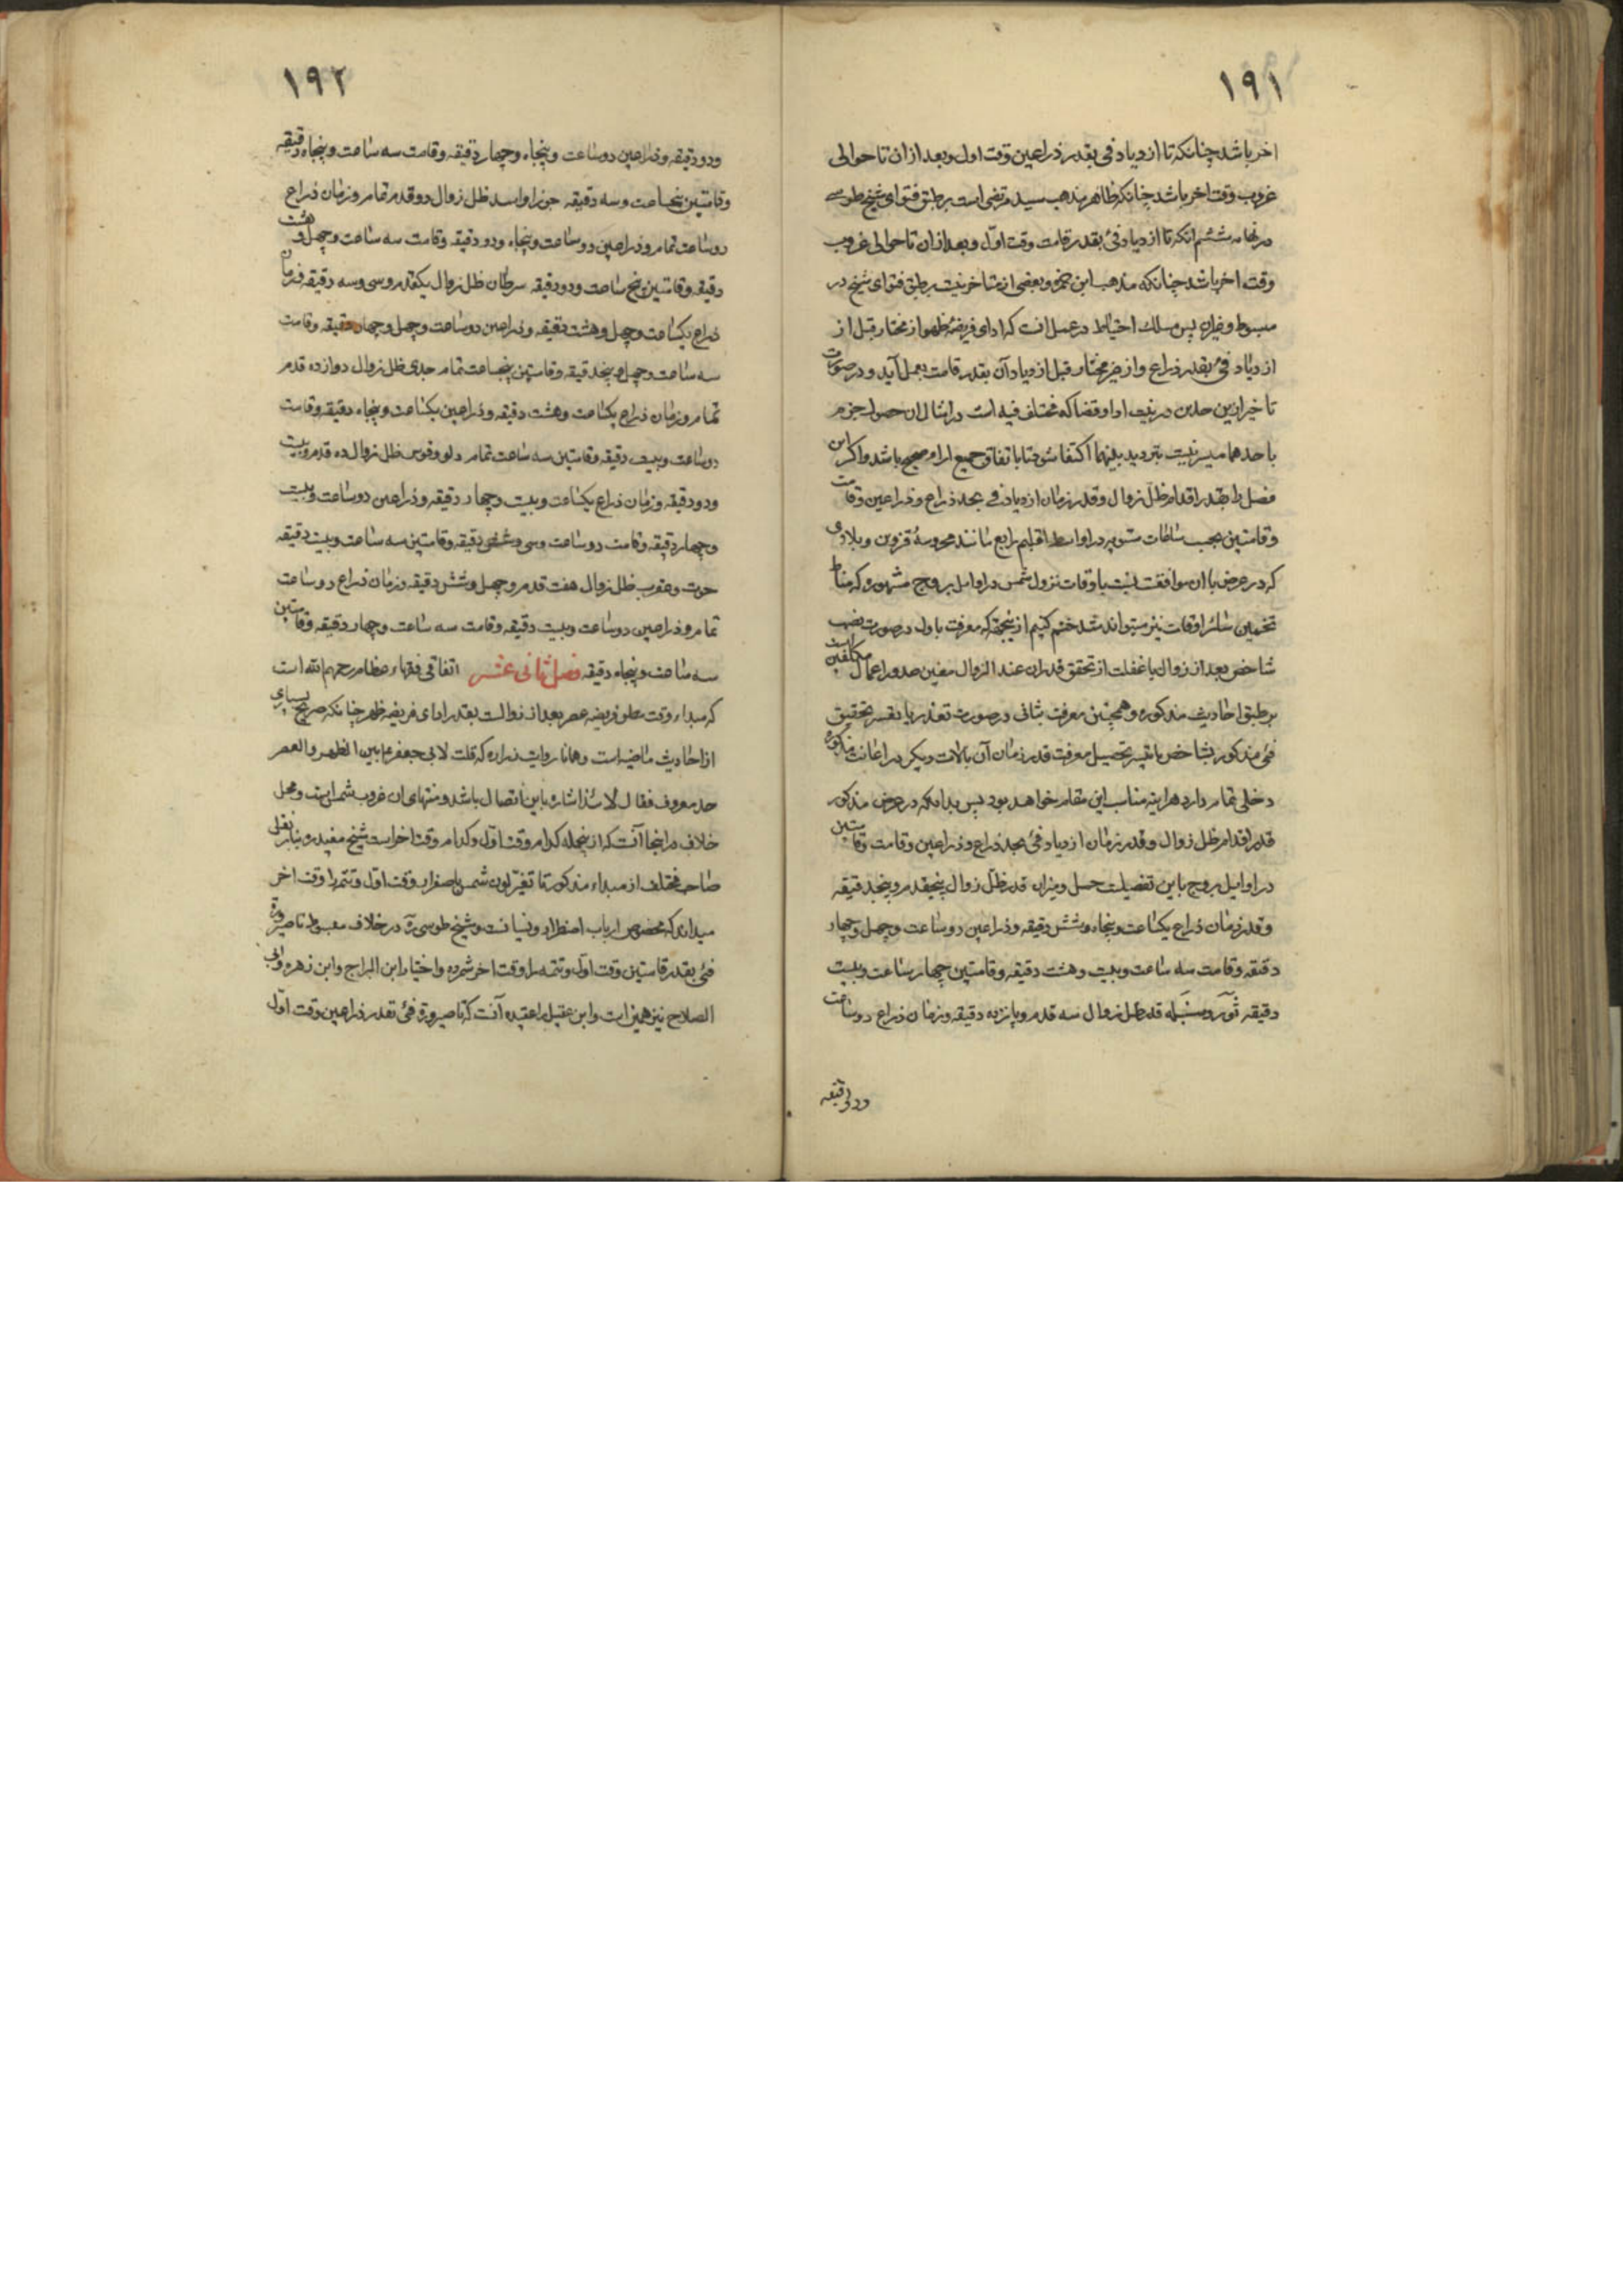 ۱۹۱
اخر باشد چنانکه تا ازدیاد فی بقدر ذراعین وقت اول و بعد ازان تا حوالی
غروب وقت اخر باشد چنانکه ظاهر مذهب سید مرتضی است برطبق فتوای شیخ طوسی
در نهایه ششم انکه تا ازدیاد فئ بقدر قامت وقت اوّل و بعد ازان تا حوالی غروب
وقت اخر باشد چنانکه مذهب ابن حمزه و بعضی از متاخرینست برطبق فتوای شیخ در
مبسوط و غیران پس مسلک احتیاط در عمل انست که ادای فریضهٔ ظهر از مختار قبل از
ازدیاد فئ بقدر ذراع و از غیر مختار قبل از ازدیاد آن بقدر قامت بعمل آید و در صورت
تاخیر ازین حدین در نیت ادا و قضا که مختلف فیه است در امثال ان حصول جزم
باحدهما میسر نیست بتردید بینهما اکتفا شود تا باتفاق جمیع اراء صحیح باشد و اکر این
فصل را بقدر اقدام ظلّ زوال و قدر زمان ازدیاد فی بحد ذراع و ذراعین و قامت
و قامتین بحسب ساعات مستویه در اواسط اقلیم رابع مانند محروسهٔ قزوین و بلادی
که در عرض با ان موافقست نسبت باوقات نزول شمس در اوایل بروج مشهوره که مناط
تخمین سائر اوقات نیز میتواند شد ختم کنیم ازینجهة که معرفت باول در صورت نصب
شاخص بعد از زوال با غفلت از تحقق قدر ان عند الزوال معین صدور اعمال مکلفین است
برطبق احادیث مذکوره و همچنین معرفت بثانی در صورت تعذر یا تعسر تحقیق
فئ مذکور بشاخص با تیسر تحصیل معرفت قدر زمان آن بآلات دیکر در اعانت مذکوره
دخلی تمام دارد هراینه مناسب این مقام خواهد بود پس بدانکه در عرض مذکور
قدر اقدام ظل زوال و قدر زمان ازدیاد فئ بحد ذراع و ذراعین و قامت و قامتین
در اوایل بروج باین تفصیلست حمل و میزان قدر ظلّ زوال پنجقدم و پنجدقیقه
و قدر زمان ذراع یکساعت و پنجاه و شش دقیقه و ذراعین دو ساعت و چهل و چهار
دقیقه و قامت سه ساعت و بیست و هشت دقیقه و قامتین چهار ساعت و بیست
دقیقه ثور و سنبله قدر ظل زوال سه قدم و پانزده دقیقه و زمان ذراع دو ساعت
و دو دقیقه
۱۹۲
و دو دقیقه و ذراعین دو ساعت و پنجاه و چهار دقیقه و قامت سه ساعت و پنجاه دقیقه
و قامتین پنجساعت و سه دقیقه جوزا و اسد ظل زوال دو قدم تمام و زمان ذراع
دو ساعت تمام و ذراعین دو ساعت و پنجاه و دو دقیقه و قامت سه ساعت و چهل و هشت
دقیقه و قامتین پنج ساعت و دو دقیقه سرطان ظل زوال یکقدم و سی و سه دقیقه و زمان
ذراع یکساعت و چهل و هشت دقیقه و ذراعین دو ساعت و چهل و چهار دقیقه و قامت
سه ساعت و چهل و پنجدقیقه و قامتین پنجساعت تمام جدی ظل زوال دوازده قدم
تمام و زمان ذراع یکساعت و هشت دقیقه و ذراعین یکساعت و پنجاه دقیقه و قامت
دو ساعت و بیست دقیقه و قامتین سه ساعت تمام دلو و قوس ظل زوال ده قدم و بیست
و دو دقیقه و زمان ذراع یکساعت و بیست و چهار دقیقه و ذراعین دو ساعت و بیست
و چهار دقیقه و قامت دو ساعت و سی و شش دقیقه و قامتین سه ساعت و بیست دقیقه
حوت و عقرب ظل زوال هفت قدم و چهل و شش دقیقه و زمان ذراع دو ساعت
تمام و ذراعین دو ساعت و بیست دقیقه و قامت سه ساعت و چهار دقیقه و قامتین
سه ساعت و پنجاه دقیقه فصل ثانی عشر اتفاقی فقهاء عظام رحمهم الله است
که مبداء وقت فریضه عصر بعد از زوالست بقدر ادای فریضه ظهر چنانکه صریح بسیاری
از احادیث ماضیه است و همانا روایت زراره که قلت لابی جعفر ع بین الظهر والعصر
حد معروف فقال لا اشاره باین اتصال باشد و منتهای ان غروب شمس است و محل
خلاف در اینجا آنست که ازینجمله کدام وقت اوّل و کدام وقت اخر است شیخ مفید و بنابر نقل
صاحب مختلف از مبداء مذکور تا تغیّر لون شمس باصفرار وقت اوّل و تتمه را وقت اخر
میداند که مخصوص ارباب اضطرار و نسیانست و شیخ طوسی ره در خلاف و مبسوط تا صیرورة
فئ بقدر قامتین وقت اوّل و تتمه را وقت اخر شمرده و اختیار ابن البراج و ابن زهره و ابی
الصلاح نیز همین است و ابن عقیل را عقیده آنست که تا صیرورة فئ بقدر ذراعین وقت اوّل